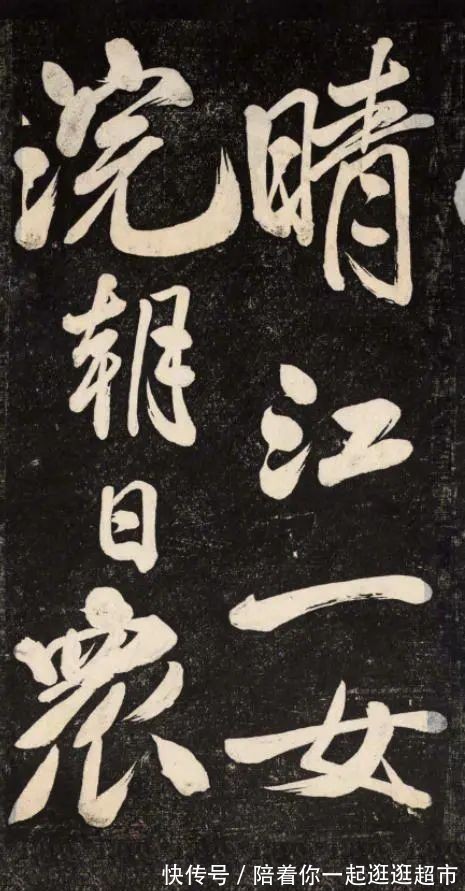 晴江一女
浣朝日眾
快传号 / 陪着你一起逛逛超市